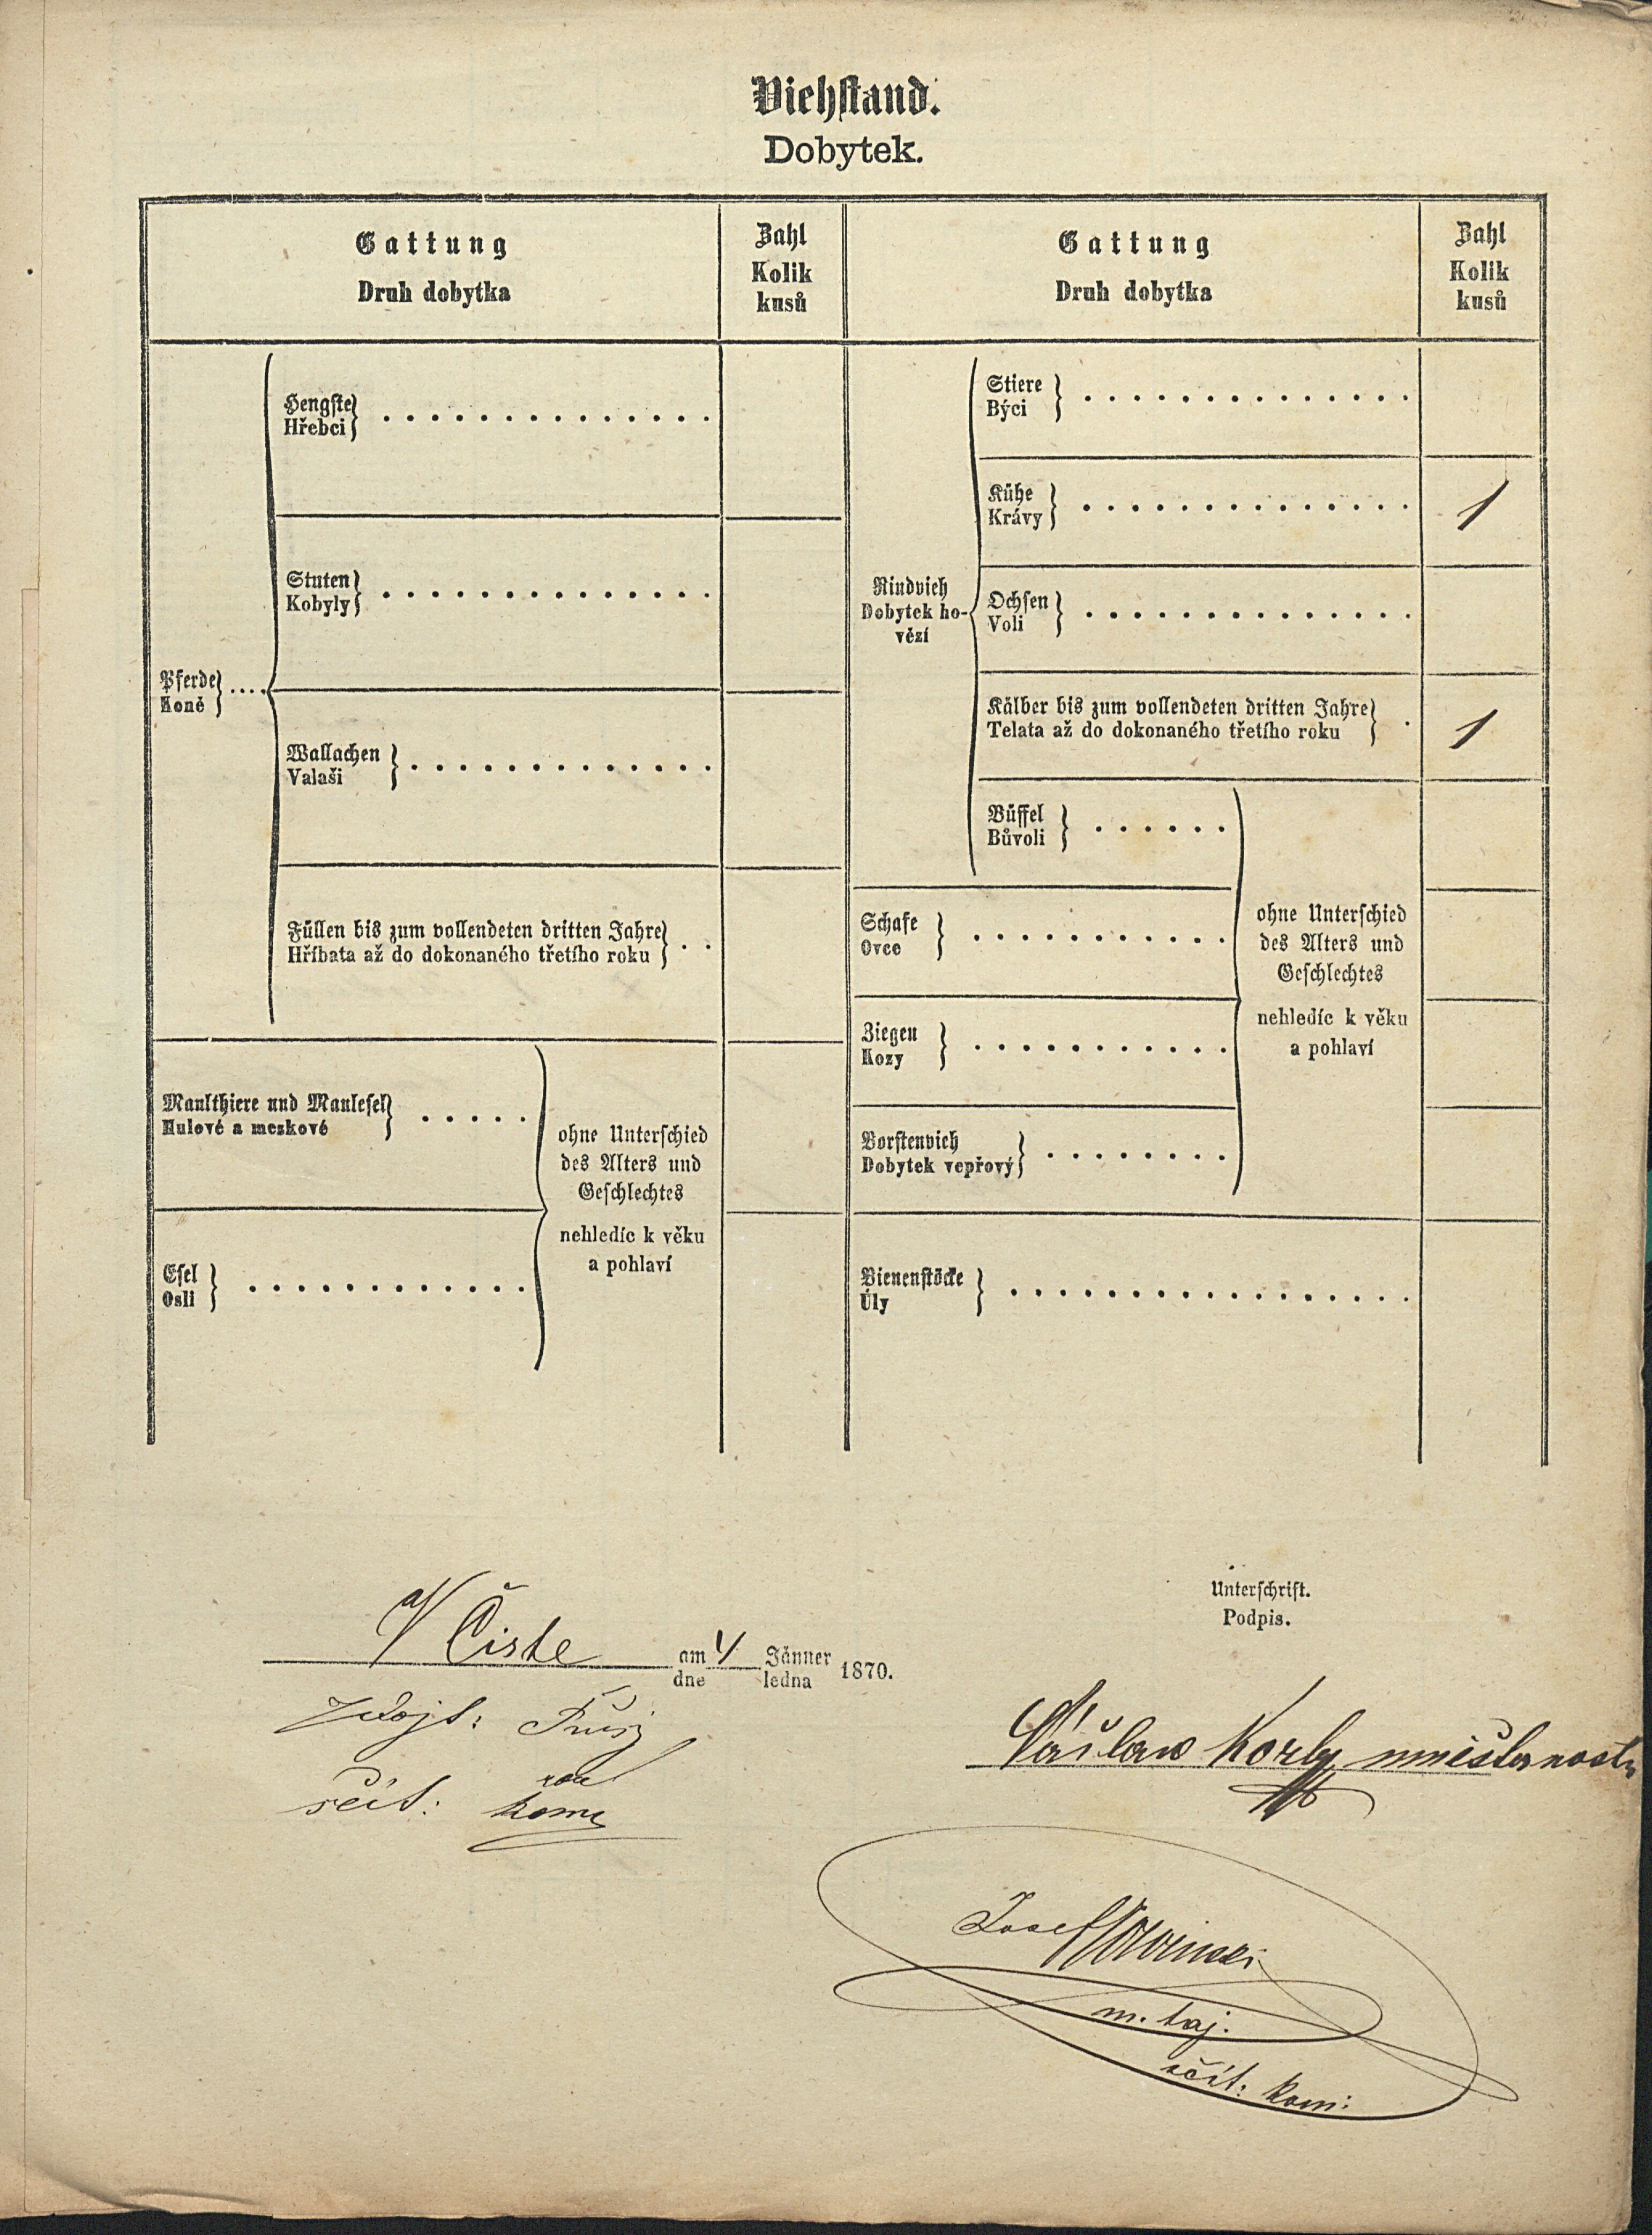 Viehstand.
Dobytek.
Gattung
Druh dobytka
Zahl
Kolik
kusů
Gattung
Druh dobytka
Zahl
Kolik
kusů
Pferde
Koně
Hengste
Hřebci
Stuten
Kobyly
Wallachen
Valaši
Füllen bis zum vollendeten dritten Jahre
Hříbata až do dokonaného třetího roku
Maulthiere und Maulesel
Mulové a mezkové
Esel
Osli
ohne Unterschied
des Alters und
Geschlechtes
nehledíc k věku
a pohlaví
Rindvieh
Dobytek ho-
vězí
Stiere
Býci
Kühe
Krávy
1
Ochsen
Voli
Kälber bis zum vollendeten dritten Jahre
Telata až do dokonaného třetího roku
1
Büffel
Bůvoli
Schafe
Ovce
Ziegen
Kozy
Borstenvieh
Dobytek vepřový
ohne Unterschied
des Alters und
Geschlechtes
nehledíc k věku
a pohlaví
Bienenstöcke
Úly
Unterschrift.
Podpis.
V Čiste am 4 Jänner 1870.
dne ledna
sčít:
Josef
m. taj.
sčít: kom: